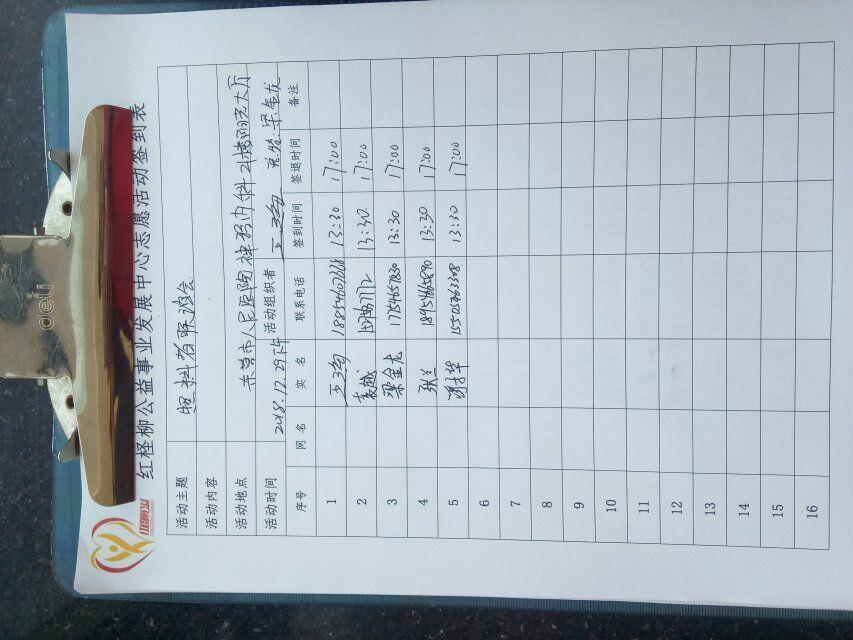 deli
红柽柳公益
红柽柳公益事业发展中心志愿活动签到表
活动主题 照料者联谊会
活动内容
活动地点 东营市人民医院神经内科门诊楼阳光大厅
活动时间 2018.12.29下午 活动组织者 梁金龙
序号 网名 实名 联系电话 签到时间 签退时间 备注
1 13:30 17:00
2 13:30 17:00
3 梁金龙 17754657830 13:30 17:00
4 张兰 18954665890 13:30 17:00
5 谢才华 15505463308 13:30 17:00
6
7
8
9
10
11
12
13
14
15
16